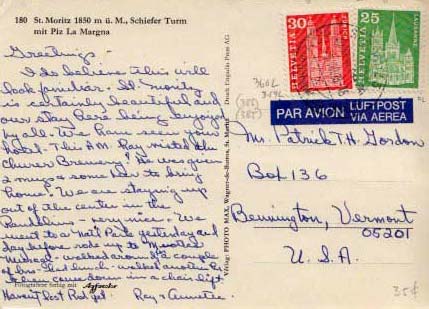 180 St. Moritz 1850 m ü. M., Schiefer Turm
mit Piz La Margna
Greetings -
I do believe this will
look familiar. St. Moritz
is certainly beautiful and
our stay here being enjoyed
by all. We have seen your
hotel. This A.M. Ray visited the
Churer Brewery! He was given
2 mugs & some beer to bring
home! We are staying up
out of the center in the
very nice. We
went to a Nat'l Park yesterday and
day before rode up to
walked around a couple
of hrs - Had lunch - walked another hr.
& then came down in a chair lift
Haven't lost Rod yet. Ray & Annette
Fotografiere farbig mit Agfacolor
Verlag: PHOTO MAX, St. Moritz
Druck: Engadin Press AG
30
HELVETIA
25
HELVETIA
LAUSANNE
PAR AVION
LUFTPOST
VIA AEREA
Mr. Patrick T.H. Gordon
Box 136
Bennington, Vermont
05201
U.S.A.
35¢